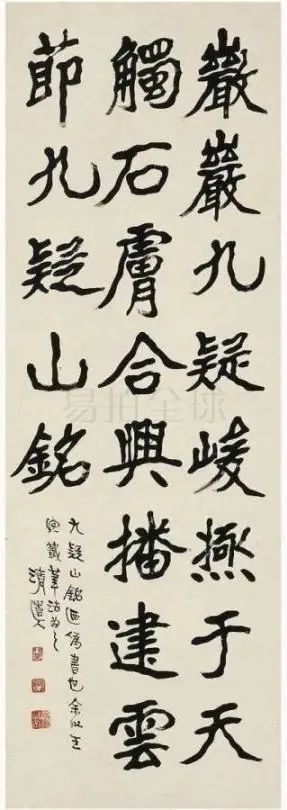 巖巖九疑峻極于天
觸石膚合興播建雲
節九疑山銘
九疑山銘偽書也余以王
筆法為之
清道人
易拍全球